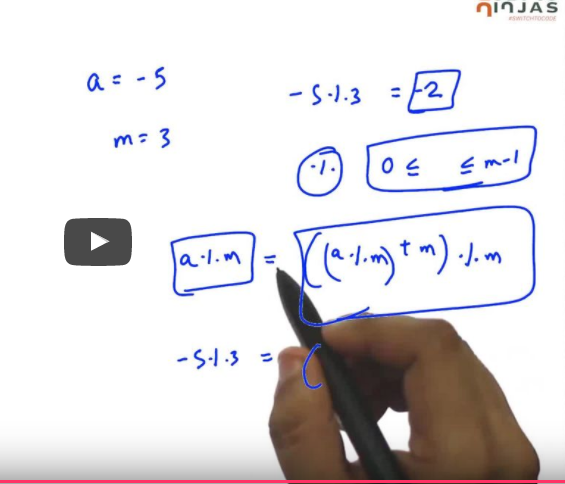 NINJAS
#SWITCHTOCODE
a = -5
-5 % 3 = -2
m = 3
% 0 ≤ ≤ m-1
a % m = ((a % m) + m) % m
-5 % 3 = (